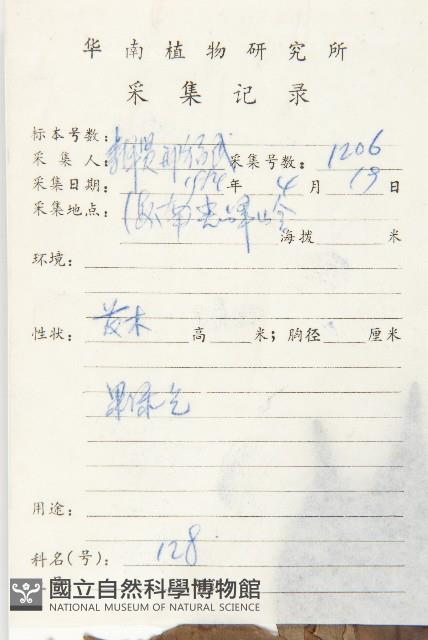 华南植物研究所
采集记录
标本号数:
采集人: 采集号数: 1206
采集日期: 1974年 4月 19日
采集地点: 海南尖峰岭
海拨 米
环境:
性状: 木 高 米; 胸径 厘米
果绿色
用途:
科名(号): 128
國立自然科學博物館
NATIONAL MUSEUM OF NATURAL SCIENCE